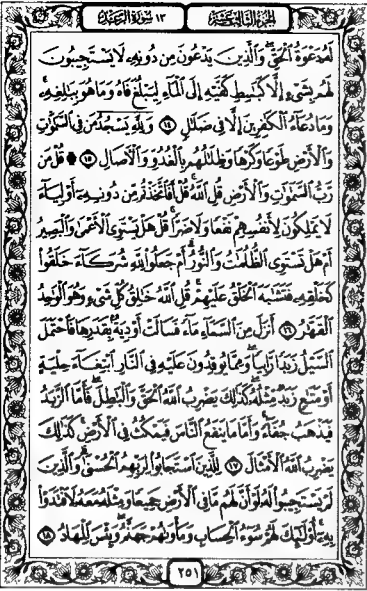 الجزء الثالث عشر
١٣ سورة الرعد
لَهُۥ دَعْوَةُ ٱلْحَقِّ ۖ وَٱلَّذِينَ يَدْعُونَ مِن دُونِهِۦ لَا يَسْتَجِيبُونَ
لَهُم بِشَىْءٍ إِلَّا كَبَـٰسِطِ كَفَّيْهِ إِلَى ٱلْمَآءِ لِيَبْلُغَ فَاهُ وَمَا هُوَ بِبَـٰلِغِهِۦ ۚ
وَمَا دُعَآءُ ٱلْكَـٰفِرِينَ إِلَّا فِى ضَلَـٰلٍ ١٤ وَلِلَّهِ يَسْجُدُ مَن فِى ٱلسَّمَـٰوَٰتِ
وَٱلْأَرْضِ طَوْعًا وَكَرْهًا وَظِلَـٰلُهُم بِٱلْغُدُوِّ وَٱلْـَٔاصَالِ ١٥ قُلْ مَن
رَّبُّ ٱلسَّمَـٰوَٰتِ وَٱلْأَرْضِ قُلِ ٱللَّهُ ۚ قُلْ أَفَٱتَّخَذْتُم مِّن دُونِهِۦٓ أَوْلِيَآءَ
لَا يَمْلِكُونَ لِأَنفُسِهِمْ نَفْعًا وَلَا ضَرًّا ۚ قُلْ هَلْ يَسْتَوِى ٱلْأَعْمَىٰ وَٱلْبَصِيرُ
أَمْ هَلْ تَسْتَوِى ٱلظُّلُمَـٰتُ وَٱلنُّورُ ۗ أَمْ جَعَلُوا۟ لِلَّهِ شُرَكَآءَ خَلَقُوا۟
كَخَلْقِهِۦ فَتَشَـٰبَهَ ٱلْخَلْقُ عَلَيْهِمْ ۚ قُلِ ٱللَّهُ خَـٰلِقُ كُلِّ شَىْءٍ وَهُوَ ٱلْوَٰحِدُ
ٱلْقَهَّـٰرُ ١٦ أَنزَلَ مِنَ ٱلسَّمَآءِ مَآءً فَسَالَتْ أَوْدِيَةٌۢ بِقَدَرِهَا فَٱحْتَمَلَ
ٱلسَّيْلُ زَبَدًا رَّابِيًا ۚ وَمِمَّا يُوقِدُونَ عَلَيْهِ فِى ٱلنَّارِ ٱبْتِغَآءَ حِلْيَةٍ
أَوْ مَتَـٰعٍ زَبَدٌ مِّثْلُهُۥ ۚ كَذَٰلِكَ يَضْرِبُ ٱللَّهُ ٱلْحَقَّ وَٱلْبَـٰطِلَ ۚ فَأَمَّا ٱلزَّبَدُ
فَيَذْهَبُ جُفَآءً ۖ وَأَمَّا مَا يَنفَعُ ٱلنَّاسَ فَيَمْكُثُ فِى ٱلْأَرْضِ ۚ كَذَٰلِكَ
يَضْرِبُ ٱللَّهُ ٱلْأَمْثَالَ ١٧ لِلَّذِينَ ٱسْتَجَابُوا۟ لِرَبِّهِمُ ٱلْحُسْنَىٰ ۚ وَٱلَّذِينَ
لَمْ يَسْتَجِيبُوا۟ لَهُۥ لَوْ أَنَّ لَهُم مَّا فِى ٱلْأَرْضِ جَمِيعًا وَمِثْلَهُۥ مَعَهُۥ لَٱفْتَدَوْا۟
بِهِۦٓ ۚ أُو۟لَـٰٓئِكَ لَهُمْ سُوٓءُ ٱلْحِسَابِ وَمَأْوَىٰهُمْ جَهَنَّمُ ۖ وَبِئْسَ ٱلْمِهَادُ ١٨
٢٥١